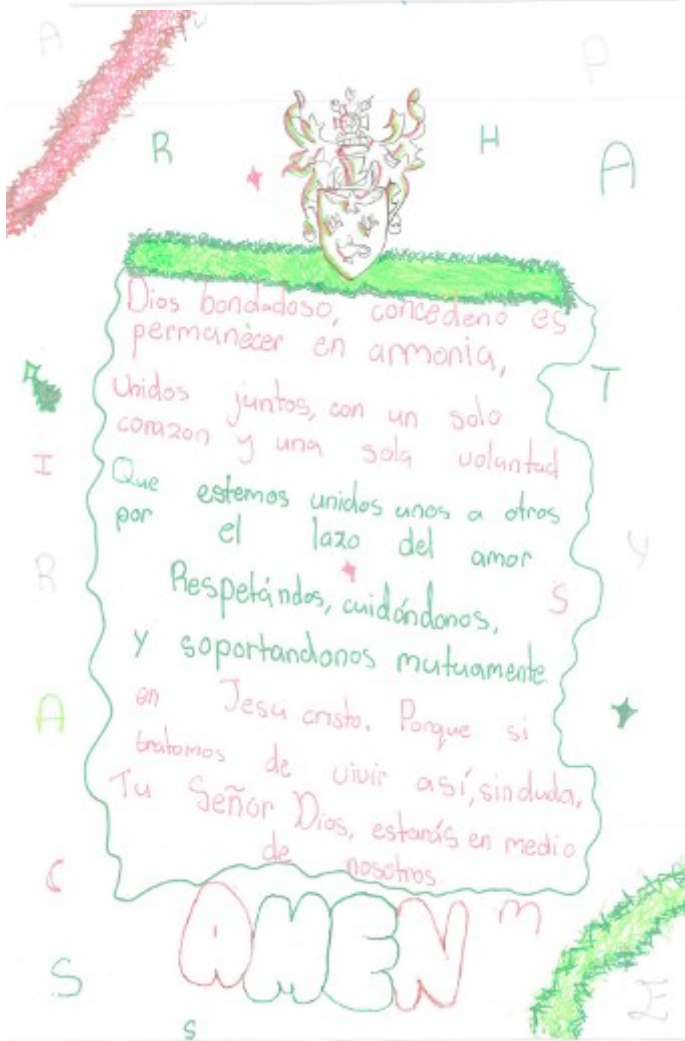 A
P
R
H
A
Dios bondadoso, concedeno es
permanecer en armonia,
T
Unidos juntos, con un solo
corazon y una sola voluntad
I
Que estemos unidos unos a otros
por el lazo del amor
Y
R
Respetándos, cuidándonos,
S
y soportandonos mutuamente
A
en Jesu cristo. Porque si
tratamos de vivir así, sin duda,
Tu Señor Dios, estarás en medio
de nosotros
C
AMEN
M
S
E
S